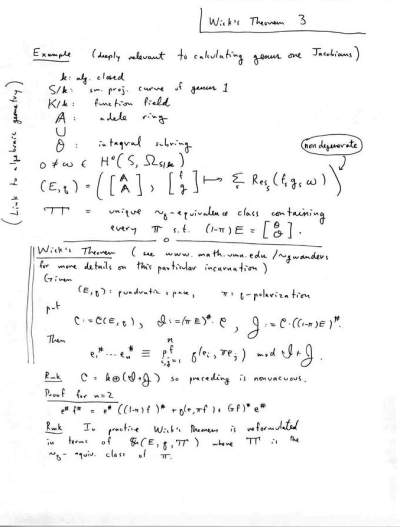 Wick's Theorem 3
Example (deeply relevant to calculating genus one Jacobians)
(Link to algebraic geometry)
k: alg. closed
S/k: sm. proj. curve of genus 1
K/k: function field
𝔸: adele ring
∪
𝒪: integral subring
0 ≠ ω ∈ H⁰(S, Ω_{S/k})
nondegenerate
(E, q) = ( [𝔸 𝔸], [f g] ↦ Σ_s Res_s(f_s g_s ω) )
Π = unique ~q-equivalence class containing
every π s.t. (1-π)E = [𝒪 𝒪].
Wick's Theorem (see www.math.umn.edu/~gwanders
for more details on this particular incarnation)
Given
(E, q): quadratic space, π: q-polarization
put
C := C(E, q), I := (πE)^# · C, J := C · ((1-π)E)^#.
Then
e₁^# ··· eₙ^# ≡ pf_{i,j=1}^n q(eᵢ, πeⱼ) mod I+J.
Rmk C = k⊕(I+J) so preceding is nonvacuous.
Proof for n=2
e^# f^# = e^# ((1-π)f)^# + q(e, πf) + (πf)^# e^#
Rmk In practice Wick's theorem is reformulated
in terms of (E, q, Π) where Π is the
~q-equiv. class of π.